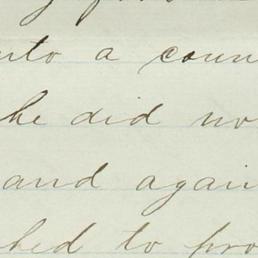 into a coun
he did no
and again
ched to pro